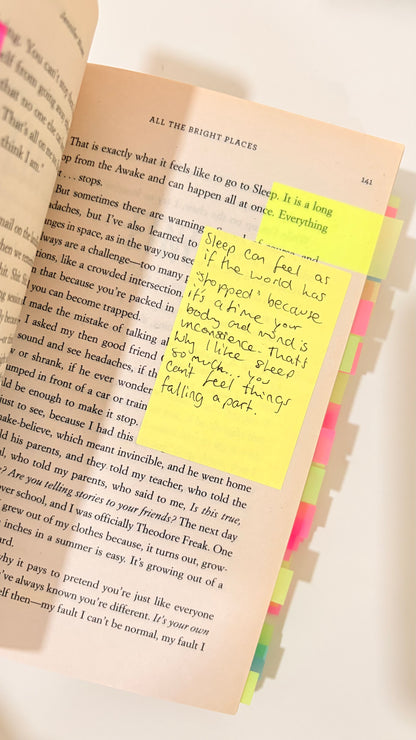 You can't
self from going
that no one
That's all
think I am."
ALL THE BRIGHT PLACES
141
That is exactly what it feels like to go to Sleep. It is a long
from the Awake and can happen all at once. Everything
. . . stops.
But sometimes there are warning
but I've also learned to
in space, as in the way you see
always are a challenge—too many
like a crowded intersection.
that because you're packed in
you can become trapped.
I made the mistake of talking
I asked my then good friend
sound and see headaches, if the
or shrink, if he ever wonder
in front of a car or train
be enough to make it stop.
just to see, because I had this
make-believe, which meant invincible, and he went home
his parents, and they told my teacher, who told the
who told my parents, who said to me, Is this true,
Are you telling stories to your friends? The next day
over school, and I was officially Theodore Freak. One
I grew out of my clothes because, it turns out, grow-
inches in a summer is easy. It's growing out of a
hard.
why it pays to pretend you're just like everyone
always known you're different. It's your own
then—my fault I can't be normal, my fault I
Sleep can feel as
if the world has
"stopped" because
it's a time your
body and mind is
inconscience. That's
why I like sleep
so much... you
can't feel things
falling apart.